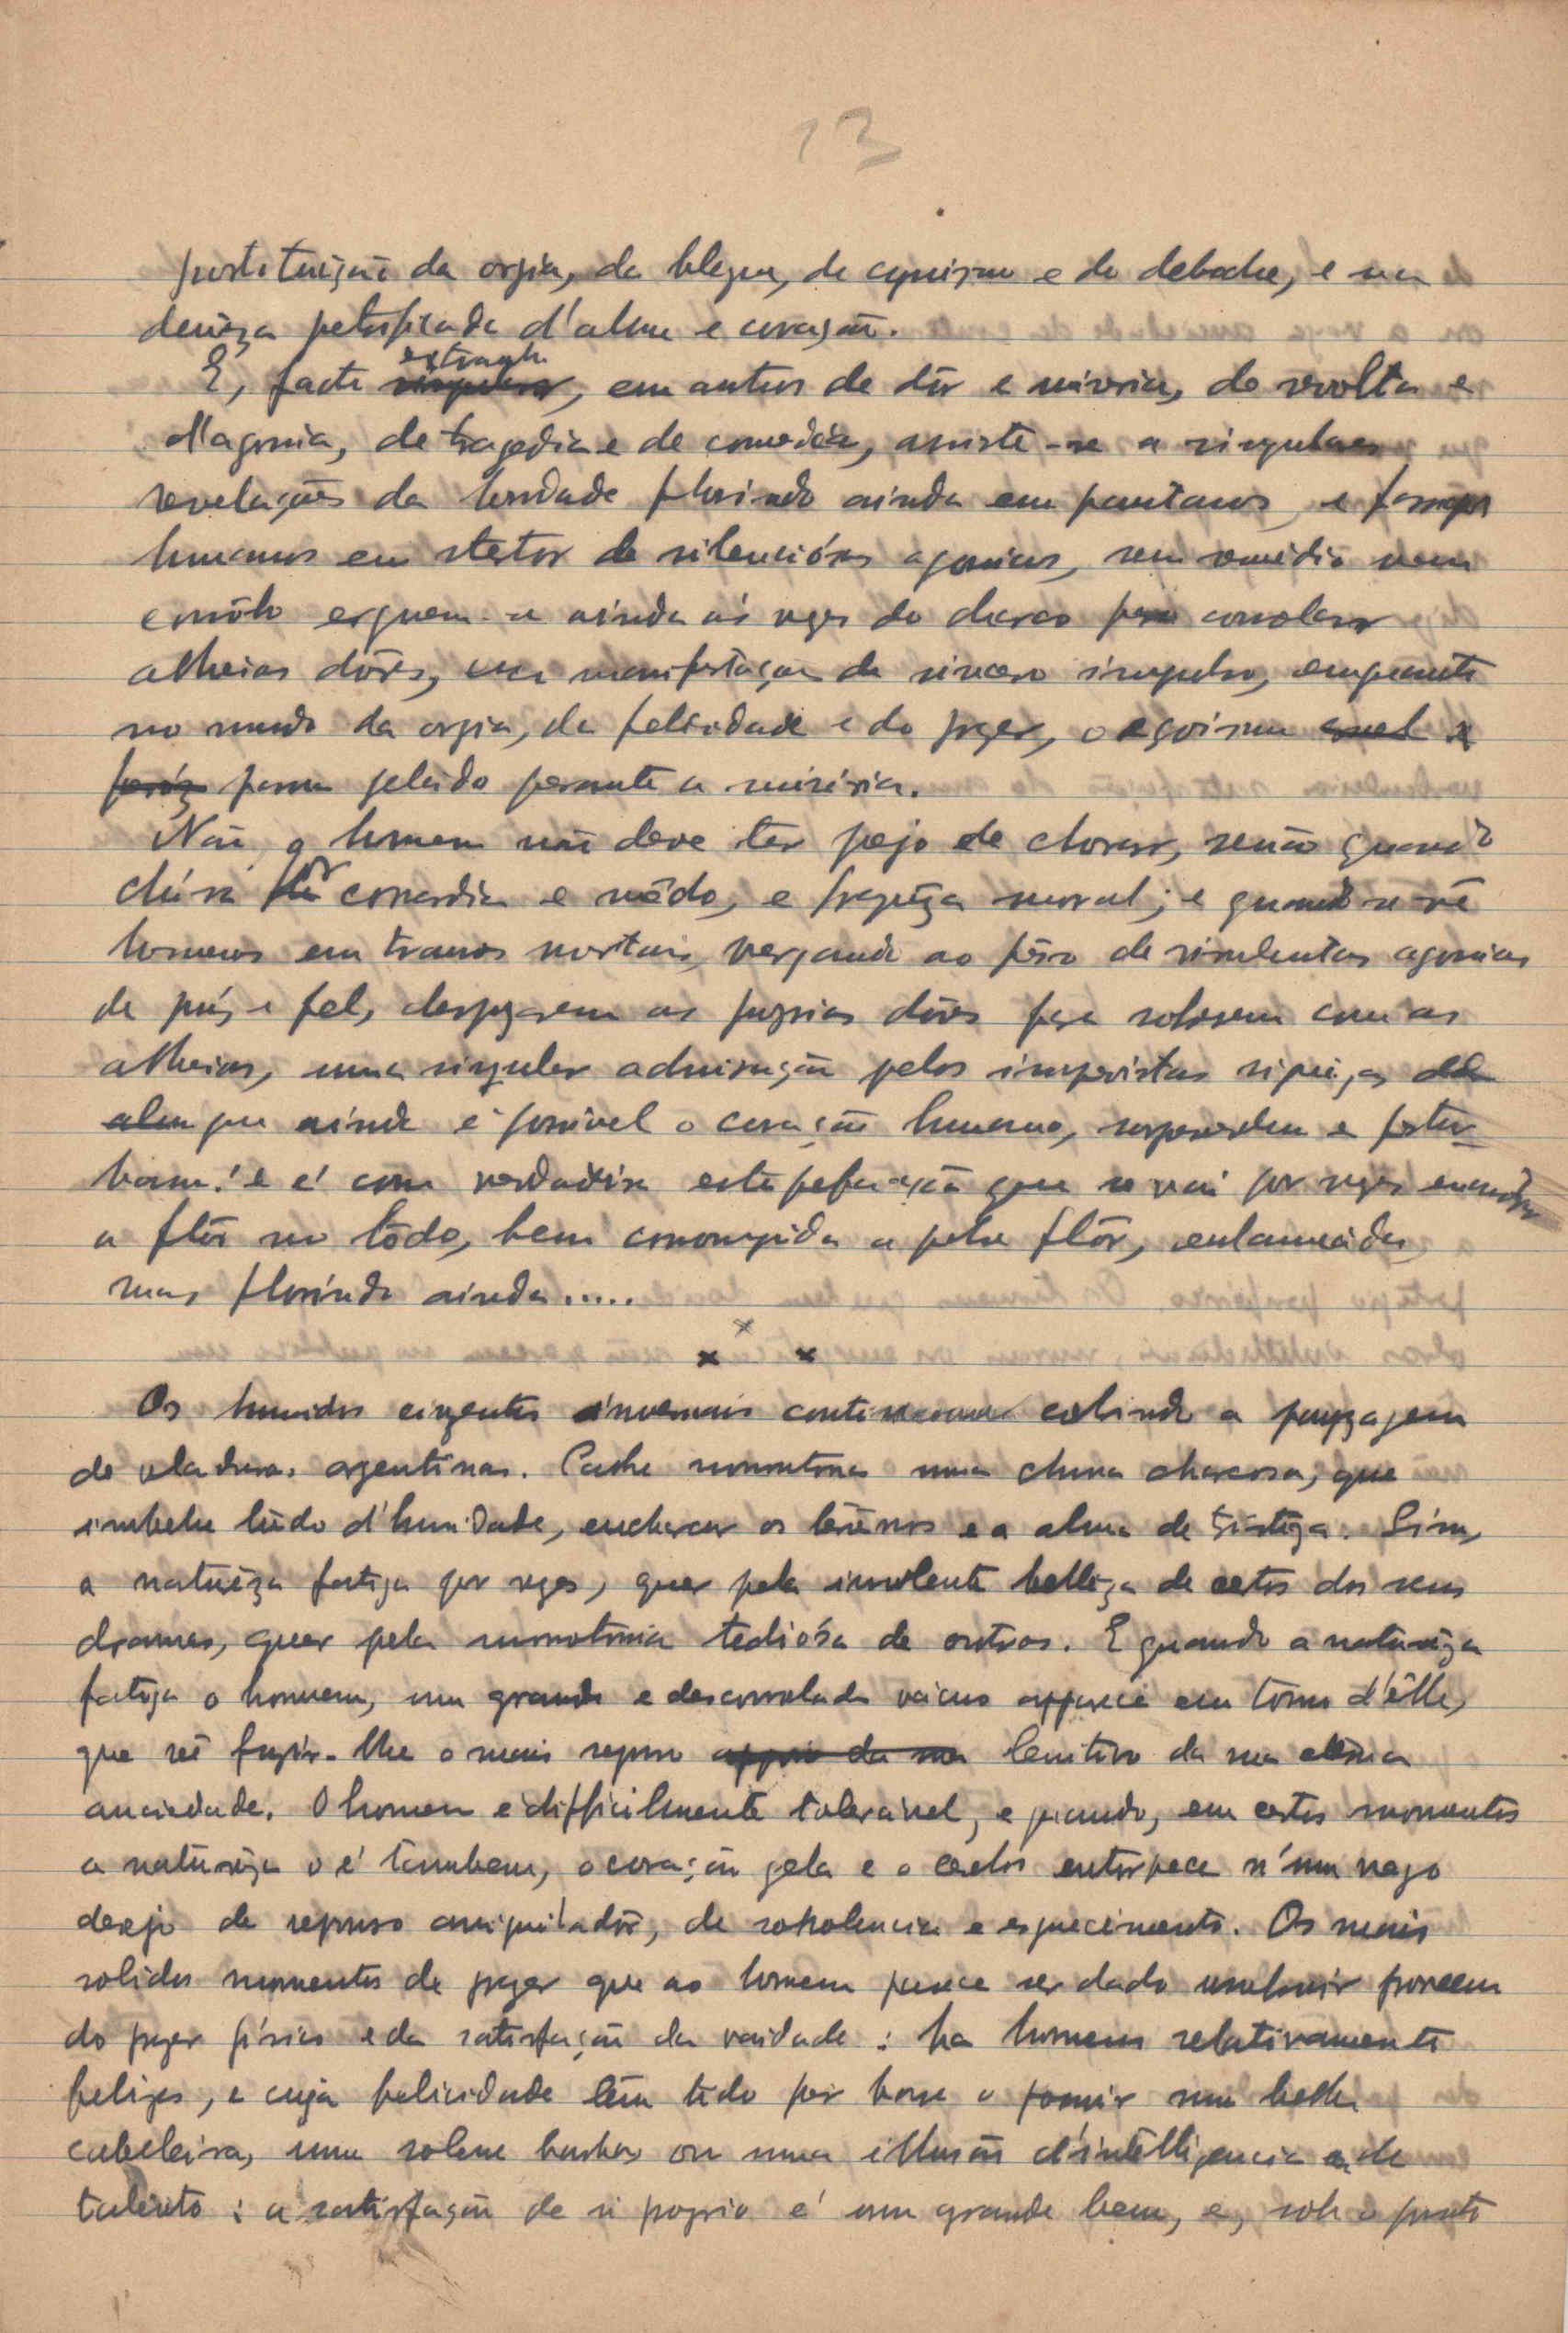 13
da orgia, da blague, de cynismo e de deboche, e
d'alma e coração.
E, facto extranho, em antros de dôr e miseria, de revolta e
d'agonia, de tragedia e de comedia, assiste-se a singulares
revelações da bondade florindo ainda em pantanos, e
humanos em stertor de silenciósas agonias, sem remédio nem
erguem-se ainda ás vezes do charco para consolar
alheias dôres, manifestação de sincero impulso, emquanto
no mundo da orgia, da felicidade e do prazer, o egoismo cruel e
feróz passa gelado perante a miséria.
Não, o homem não deve ter pejo de chorar, senão quando
chóra por covardia e mêdo, e moral; e quando se vê
homens em transes mortais, vergando ao pêso de agonias
de pús e fel, desprezarem as proprias dôres para sofrerem com as
alheias, uma singular admiração pelos imprevistos
que ainda é possivel o coração humano, surprehendem e pertur-
bam: e é com verdadeira estupefacção que se vai por vezes encontrar
a flôr no lôdo, bem corrompida a pobre flôr, enlameada,
mas florindo ainda.....
x x x
Os humidos invernais continuavam cobindo a payzagem
de veladuras argentinas. Cache monotona uma chuva charcosa, que
imbebe tudo d'humidade, encharcar os terrenos e a alma de tristeza. Sim,
a naturêza fatiga por vezes, quer pela insolente belleza de certos dos seus
dramas, quer pela monotonia tediósa de outros. E quando a naturêza
fatiga o homem, um grande e desconsolado vacuo apparece em torno d'êlle,
que vê fugir-lhe o mais seguro apoio da sua lenitivo da sua etérna
anciedade. O homem é difficilmente toleravel, e quando, em certos momentos
a naturêza o é tambem, o coração gela e o entorpece n'um vago
desejo de repouso aniquiladôr, de sonolencia e esquecimento. Os mais
solidos momentos de prazer que ao homem parece ser dado usufruir provêem
do prazer físico e da satisfação da vaidade: ha homens relativamente
felizes, e cuja felicidade têm tido por base o possuir uma bella
cabeleira, uma solene barba ou uma illusão d'intelligencia e de
talento: a satisfação de si proprio é um grande bem, e, sob o ponto